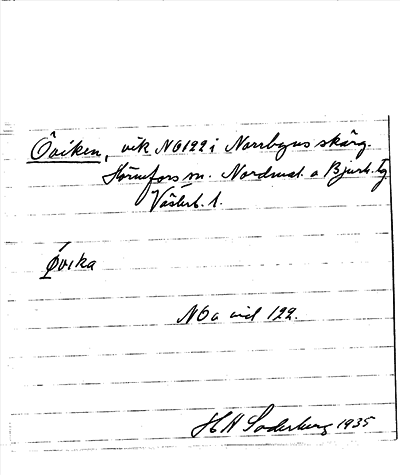 Öviken, vik NO 122 i Norrbyns skärg.
Hörnefors sn. Nordmal. o Bjurh. tg
Västerb. l.
Övika
NO a vid 122.
H A Söderberg 1935